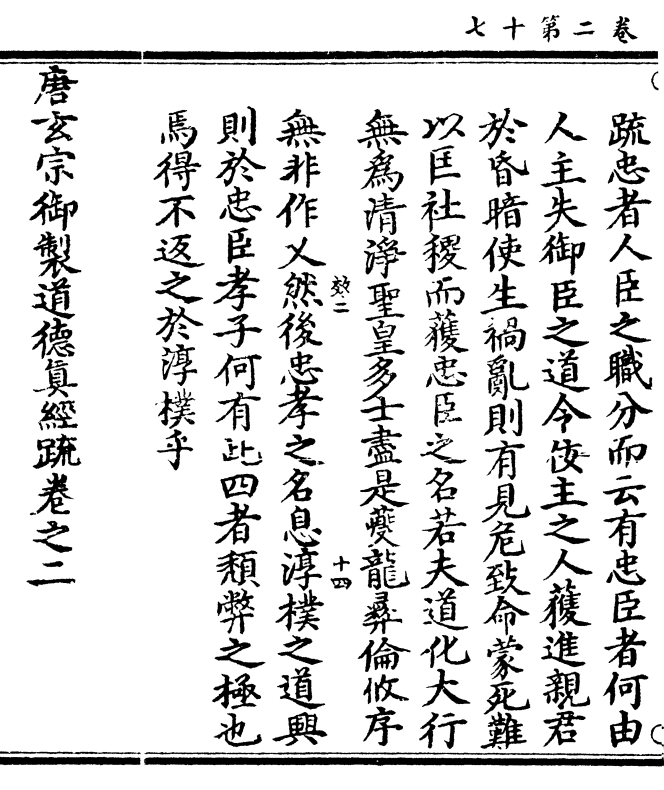 卷二第十七
疏忠者人臣之職分而云有忠臣者何由
人主失御臣之道令佞主之人獲進親君
於昏暗使生禍亂則有見危致命蒙死難
以匡社稷而獲忠臣之名若夫道化大行
無爲清淨聖皇多士盡是夔龍彝倫攸序
效二
十四
無非作乂然後忠孝之名息淳樸之道興
則於忠臣孝子何有此四者頹弊之極也
焉得不返之於淳樸乎
唐玄宗御製道德眞經疏卷之二